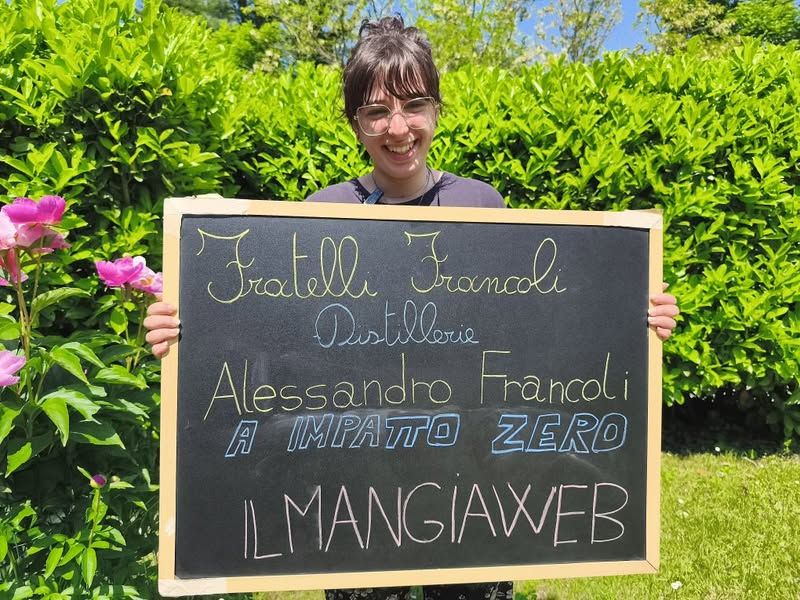 Fratelli Francoli
Distillerie
Alessandro Francoli
A IMPATTO ZERO
ILMANGIAWEB